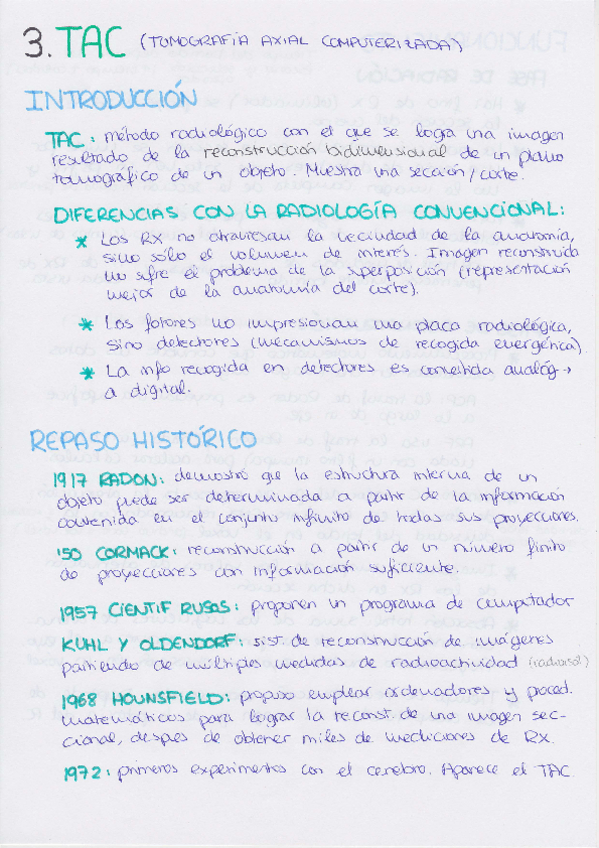 3. TAC (TOMOGRAFÍA AXIAL COMPUTERIZADA)
INTRODUCCIÓN
TAC: método radiológico con el que se logra una imagen
resultado de la reconstrucción bidimensional de un plano
tomográfico de un objeto. Muestra una sección/corte.
DIFERENCIAS CON LA RADIOLOGÍA CONVENCIONAL:
* Los RX no atraviesan la vecindad de la anatomía,
sino sólo el volumen de interés. Imagen reconstruida
no sufre el problema de la superposición (representación
mejor de la anatomía del corte).
* Los fotones no impresionan una placa radiológica,
sino detectores (mecanismos de recogida energética).
* La info recogida en detectores es convertida analóg →
a digital.
REPASO HISTÓRICO
1917 RADON: demostró que la estructura interna de un
objeto puede ser determinada a partir de la información
contenida en el conjunto infinito de todas sus proyecciones.
'50 CORMACK: reconstrucción a partir de un número finito
de proyecciones con información suficiente.
1957 CIENTIF RUSOS: proponen un programa de computador
KUHL Y OLDENDORF: sist. de reconstrucción de imágenes
partiendo de múltiples medidas de radioactividad (radioisót.)
1968 HOUNSFIELD: propuso emplear ordenadores y proced.
matemáticos para lograr la reconst. de una imagen sec-
cional, despes de obtener miles de mediciones de RX.
1972: primeros experimentos con el cerebro. Aparece el TAC.